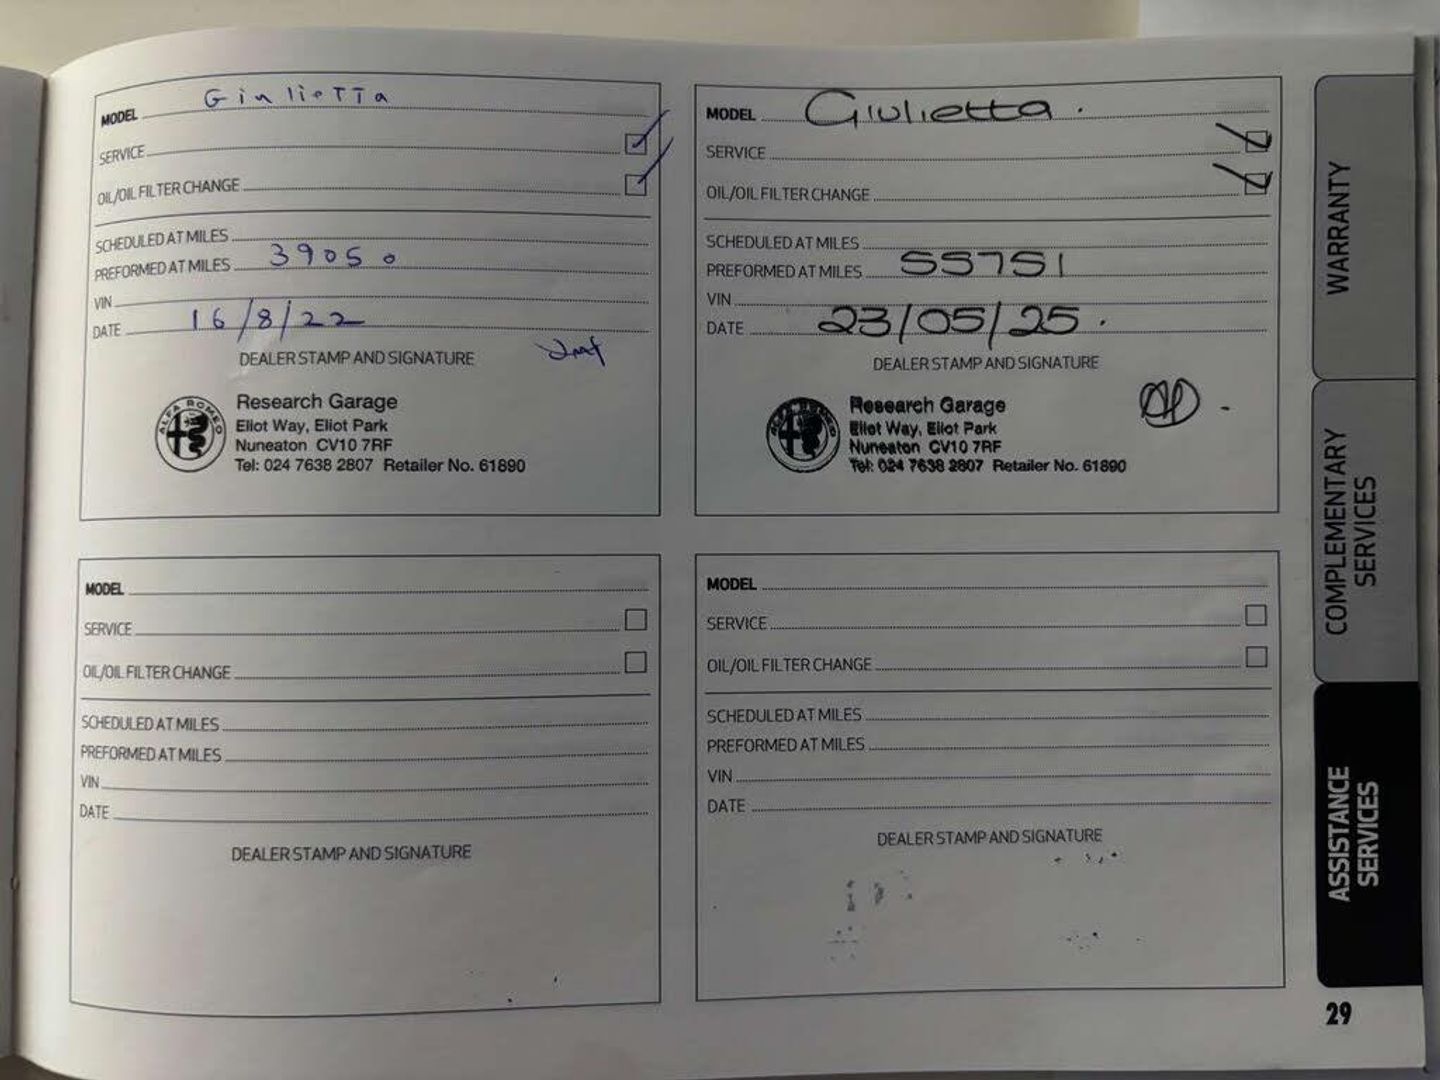 MODEL Giulietta
SERVICE
OIL/OIL FILTER CHANGE
SCHEDULED AT MILES
PREFORMED AT MILES 39050
VIN
DATE 16/8/22
DEALER STAMP AND SIGNATURE
ALFA ROMEO
Research Garage
Eliot Way, Eliot Park
Nuneaton CV10 7RF
Tel: 024 7638 2807 Retailer No. 61890
MODEL Giulietta.
SERVICE
OIL/OIL FILTER CHANGE
SCHEDULED AT MILES
PREFORMED AT MILES 55751
VIN
DATE 23/05/25.
DEALER STAMP AND SIGNATURE
ALFA ROMEO
Research Garage
Eliot Way, Eliot Park
Nuneaton CV10 7RF
Tel: 024 7638 2807 Retailer No. 61890
MODEL
SERVICE
OIL/OIL FILTER CHANGE
SCHEDULED AT MILES
PREFORMED AT MILES
VIN
DATE
DEALER STAMP AND SIGNATURE
MODEL
SERVICE
OIL/OIL FILTER CHANGE
SCHEDULED AT MILES
PREFORMED AT MILES
VIN
DATE
DEALER STAMP AND SIGNATURE
WARRANTY
COMPLEMENTARY
SERVICES
ASSISTANCE
SERVICES
29